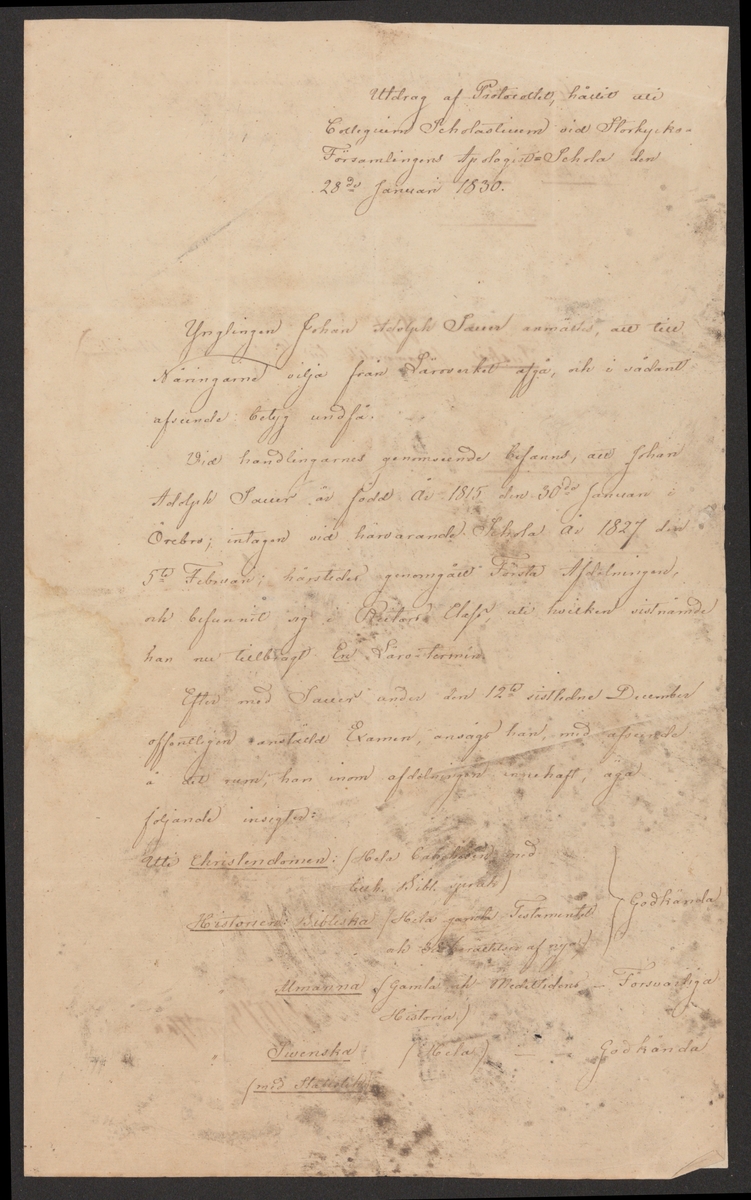 Utdrag af Protocollet, hållit uti
Collegium Scholasticum vid Storkyrko-
Församlingens Apologist-Schola den
28de Januari 1830.
Ynglingen Johan Adolph Sauer anmältes, att till
Näringarne vilja från Läroverket afgå, och i sådant
afseende betyg undfå.
Vid handlingarnes genomseende befanns, att Johan
Adolph Sauer är född År 1815 den 30de Januari i
Örebro; intagen vid härvarande Schola År 1827 den
5te Februari; härstedes genomgått Första Afdelningen,
och befunnit sig i Rectors Class, uti hvilken sistnämde
han nu tillbragt En Läro-termin.
Efter med Sauer under den 12te sistledne December
offentligen anstäld Examen, ansågs han, med afseende
å det rum, han inom afdelningen innehaft, äga
följande insigter:
Uti Christendomen: (Hela Catechesen med
Bibl. språk)
Historien: Bibliska (Hela gamla Testamentet
och af nya) Godkända
Allmänna (Gamla och Medeltidens — Försvarliga
Historia.)
Swenska (Hela) — — Godkända
(med Statistik)